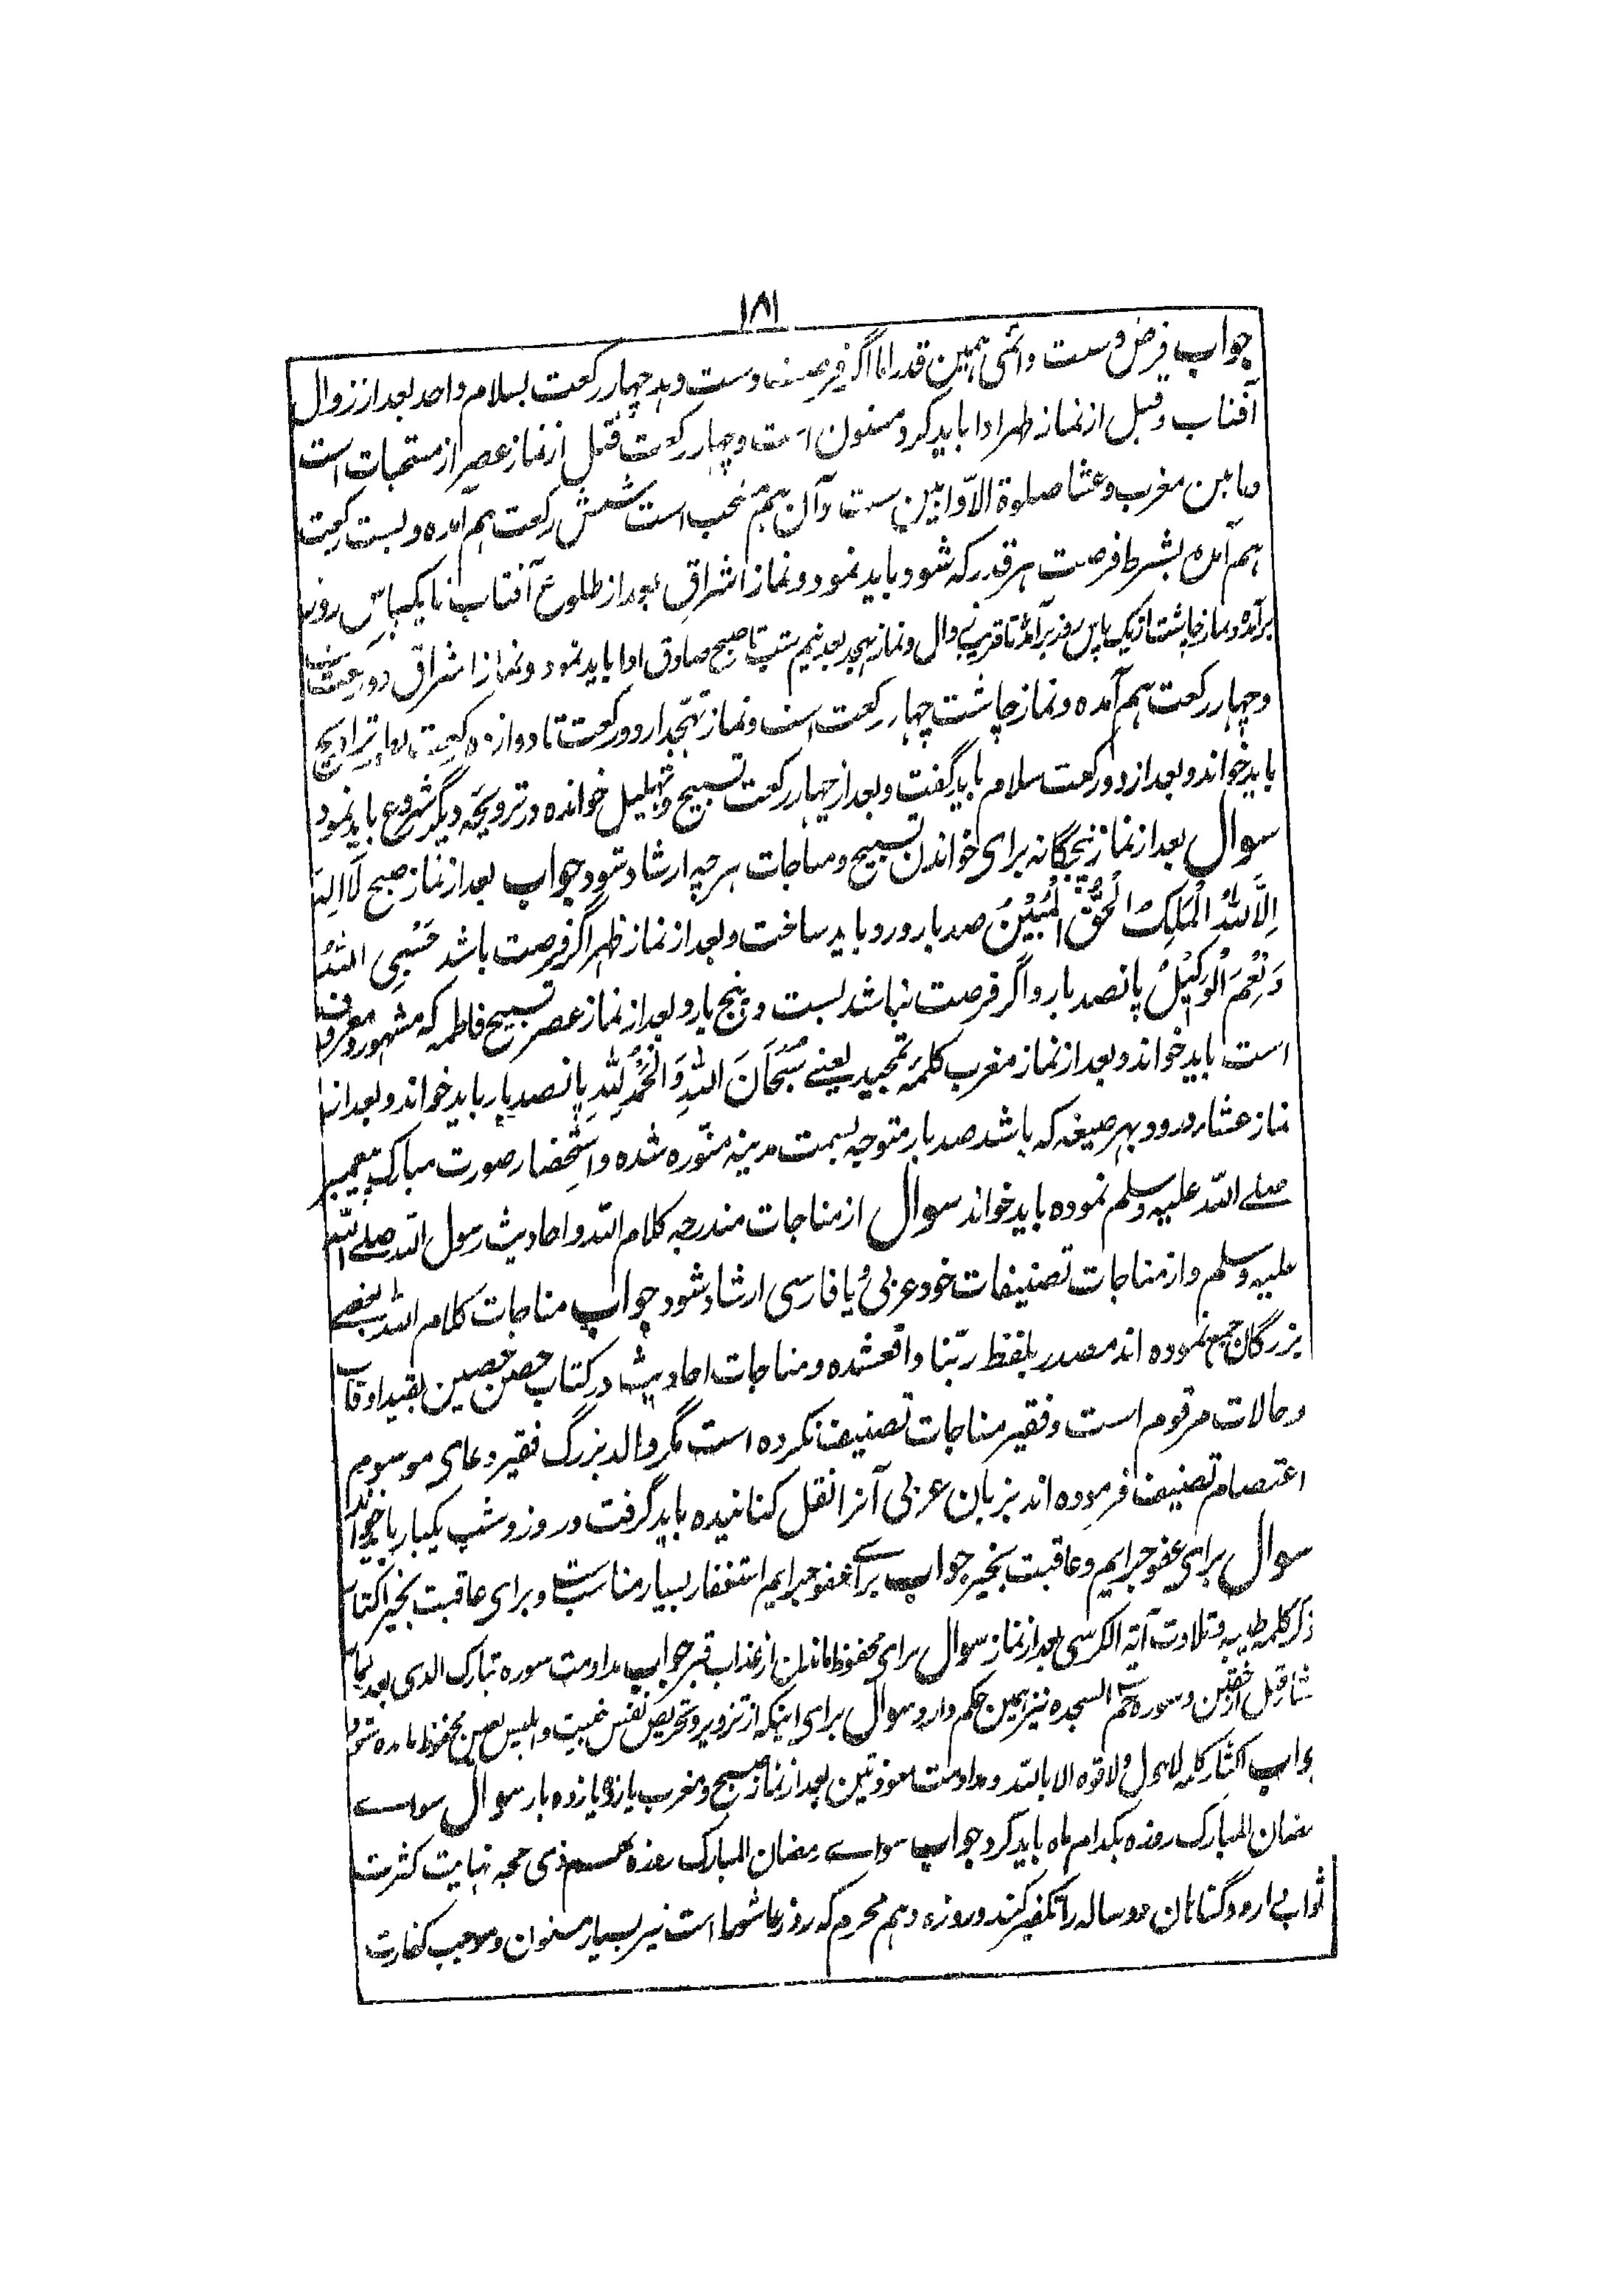 ۱۸۱
جواب فرض وسنت دائمی همین قدر اما اگر فرصت دست دهد چهار رکعت بسلام واحد بعد از زوال
آفتاب وقبل از نماز ظهر ادا باید کرد ومسنون است وچهار رکعت قبل از نماز عصر از مستحبات است
ومابین مغرب وعشا صلوة الاوّابین ست وآن هم مستحب است شش رکعت هم آمده وبست رکعت
هم آمده بشرط فرصت هر قدر که شود باید نمود ونماز اشراق بعد از طلوع آفتاب تا یکپاس روز
برآمده ونماز چاشت از یک پاس روز برآمده تا قریب زوال ونماز تهجد بعد نیم شب تا صبح صادق ادا باید نمود ونماز اشراق دو رکعت ست
وچهار رکعت هم آمده ونماز چاشت چهار رکعت است ونماز تهجّد از دو رکعت تا دوازده رکعت نماز تراویح
باید خواند وبعد از دو رکعت سلام باید گفت وبعد از چهار رکعت تسبیح وتهلیل خوانده در ترویحه دیگر شروع باید نمود
سوال بعد از نماز پنجگانه برای خواندن تسبیح ومناجات هر چه ارشاد شود جواب بعد از نماز صبح لَا اِلٰهَ
اِلَّا اللهُ الْمَلِکُ الْحَقُّ الْمُبِیْنُ صد بار ورد باید ساخت وبعد از نماز ظهر اگر فرصت باشد حَسْبِیَ اللهُ
وَنِعْمَ الْوَکِیْلُ پانصد بار واگر فرصت نباشد بست وپنج بار وبعد از نماز عصر تسبیح فاطمه که مشهور ومعروف
است باید خواند وبعد از نماز مغرب کلمه تمجید یعنے سُبْحَانَ اللهِ وَالْحَمْدُ لِلّٰهِ پانصد بار باید خواند وبعد از
نماز عشا درود بهر صیغه که باشد صد بار متوجه بسمت مدینه منوّره شده واستحضار صورت مبارک پیغمبر
صلے الله علیه وسلم نموده باید خواند سوال از مناجات مندرجه کلام الله واحادیث رسول الله صلے الله
علیه وسلم واز مناجات تصنیفات خود عربی یا فارسی ارشاد شود جواب مناجات کلام الله بعضے
بزرگان جمع نموده اند مصدر بلفظ ربّنا واقعشده ومناجات احادیث در کتاب حصن حصین بقید اوقات
وحالات مرقوم است وفقیر مناجات تصنیف نکرده است مگر والد بزرگ فقیر دعای موسوم
اعتصام تصنیف فرموده اند بزبان عربی آنرا نقل کنانیده باید گرفت ودر روز وشب یکبار باید خواند
سوال برای عفو جرایم وعاقبت بخیر جواب برائے عفو جرایم استغفار بسیار مناسب ست وبرای عاقبت بخیر اکثار
ذکر کلمه طیبه وتلاوت آیة الکرسی بعد از نماز سوال برای محفوظ ماندن از عذاب قبر جواب مداومت سوره تبارک الذی بعد نماز
عشا قبل از خفتن وسوره حم السجده نیز همین حکم دارد سوال برای اینکه از تزویر وتحریص نفس خبیث وابلیس لعین محفوظ مانده شود
جواب اکثار کلمه لاحول ولا قوه الا بالله ومداومت معوذتین بعد از نماز صبح ومغرب یازده یازده بار سوال سواے
رمضان المبارک روزه بکدام ماه باید کرد جواب سواے رمضان المبارک روزه نهم ذی حجه نهایت کثرت
ثواب دارد وگناهان دو ساله را تکفیر کند وروزه دهم محرم که روز عاشورا است نیز بسیار مسنون وموجب کفارت